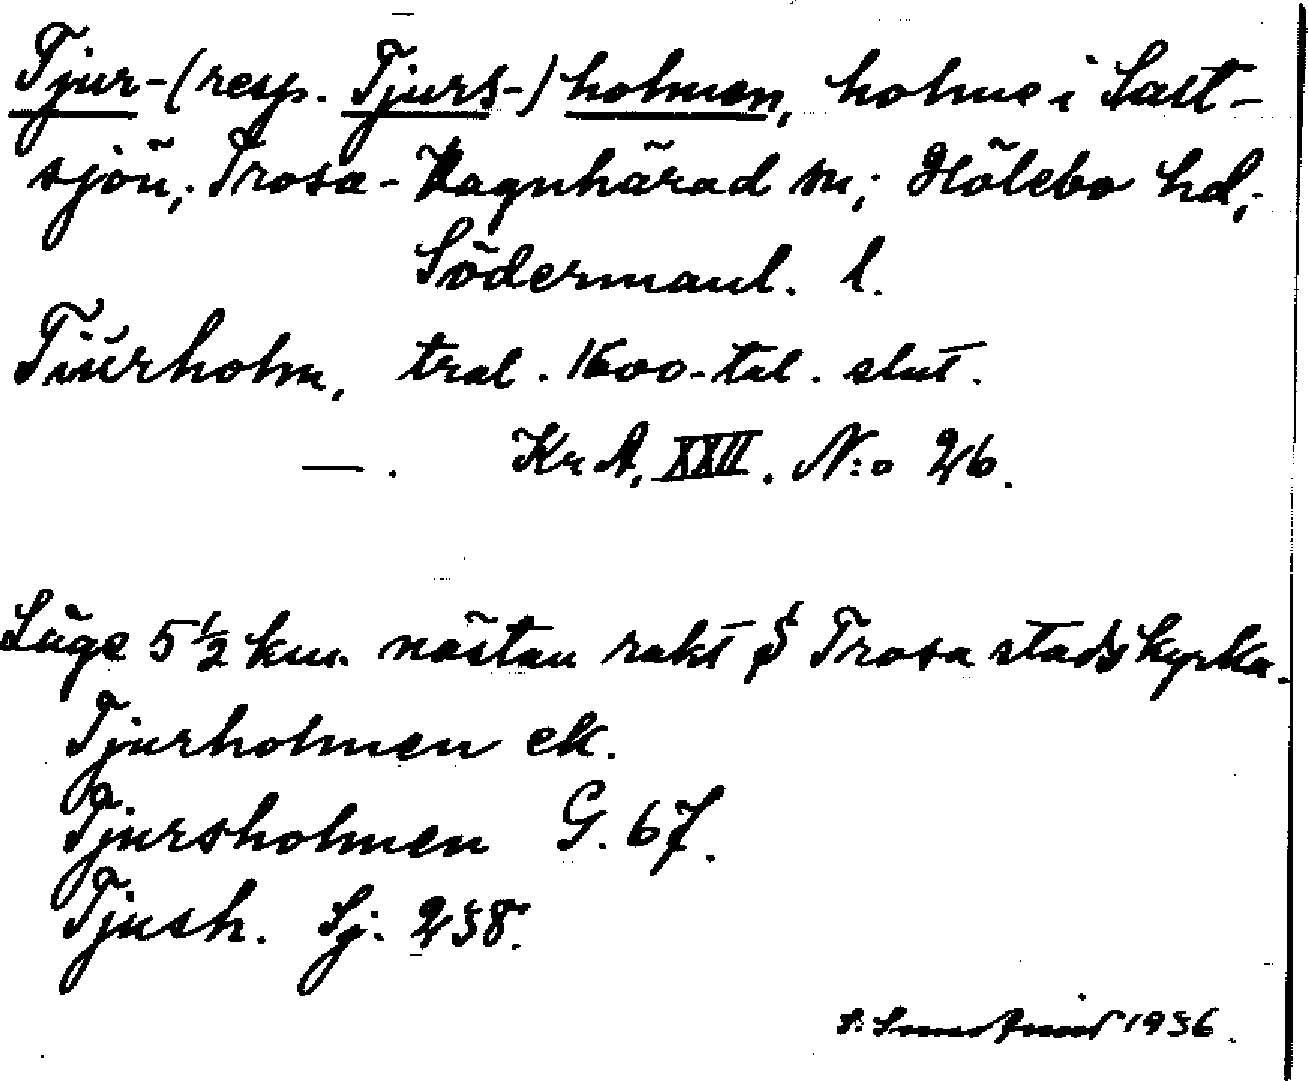 Tjur-(resp. Tjurs-)holmen, holme i Salt-
sjön, Trosa-Vagnhärad sn, Hölebo hd,
Södermanl. l.
Tiurholm, tral. 1600-tal. slut.
— . Kr A, XXII. N:o 26.
Läge 5 1/2 km. nästan rakt S Trosa stads kyrka.
Tjurholmen ek.
Tjursholmen G. 67.
Tjush. Sj. 238.
S. 1936.